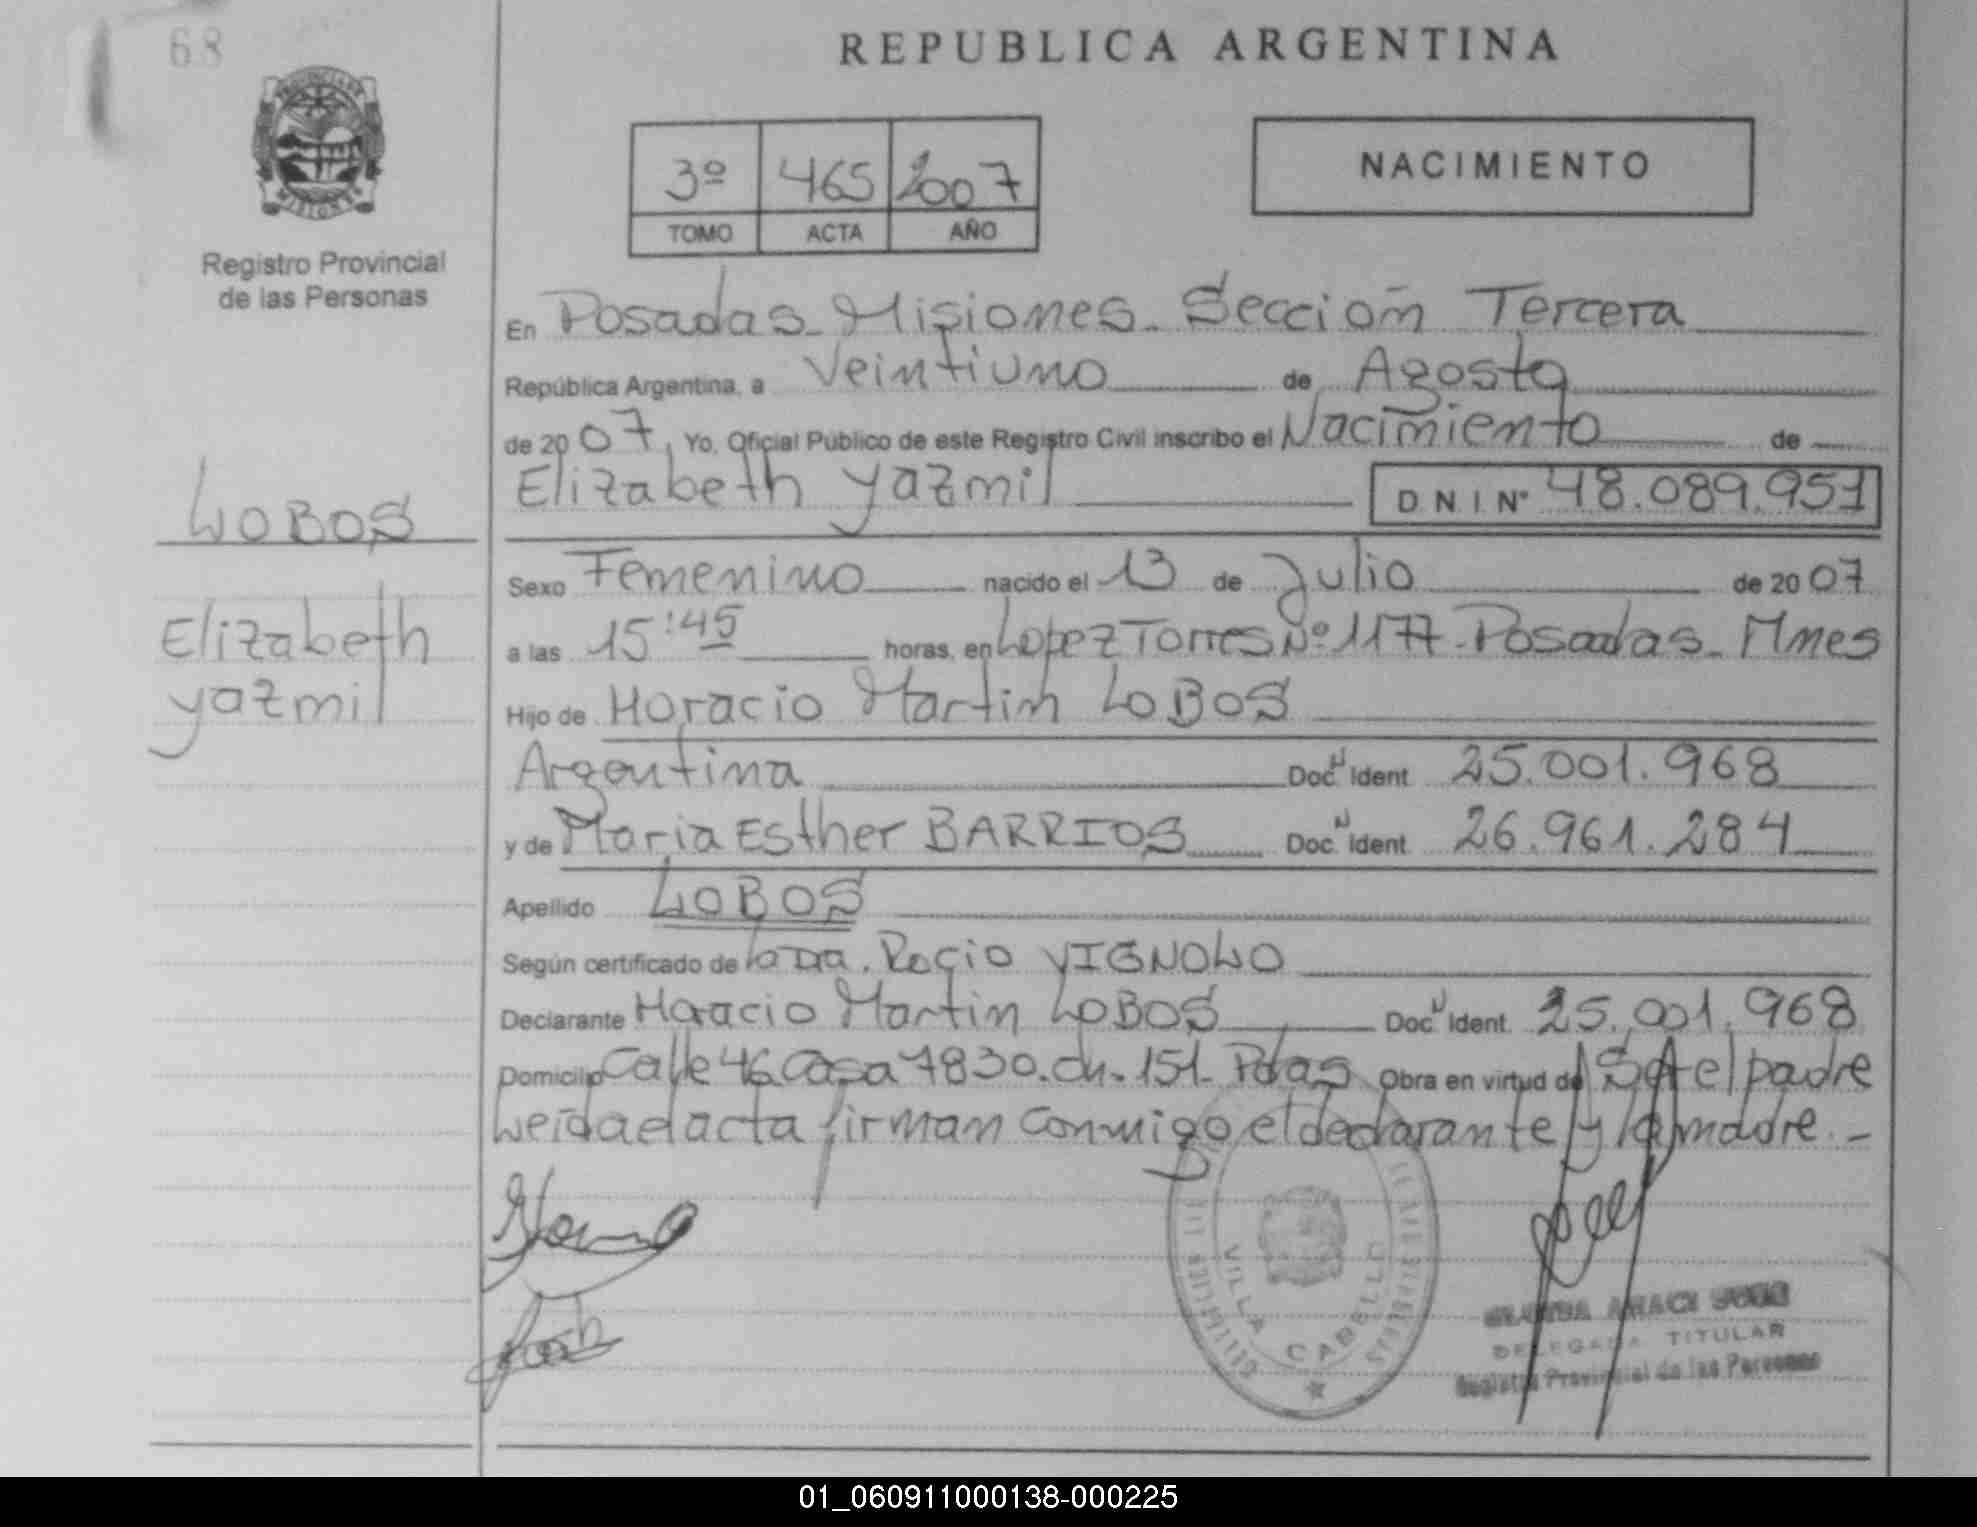 68
REPUBLICA ARGENTINA
PROVINCIA DE
MISIONES
Registro Provincial
de las Personas
3º 465 2007
TOMO ACTA AÑO
NACIMIENTO
En Posadas - Misiones - Sección Tercera
República Argentina, a Veintiuno de Agosto
de 2007, Yo, Oficial Público de este Registro Civil inscribo el Nacimiento de
Elizabeth Yazmil D.N.I. Nº 48.089.951
LOBOS
Sexo Femenino nacido el 13 de Julio de 2007
Elizabeth
Yazmil
a las 15:45 horas, en Lopez Torres Nº 1177 - Posadas - Mnes
Hijo de Horacio Martin LOBOS
Argentina Doc. N Ident 25.001.968
y de Maria Esther BARRIOS Doc. N Ident 26.961.284
Apellido LOBOS
Según certificado de la Dra. Rocio VIGNOLO
Declarante Horacio Martin LOBOS Doc. N Ident. 25.001.968
Domicilio Calle 46 Casa 7830. ch. 151 - Pdas Obra en virtud de el padre
Leída el acta firman conmigo el declarante y la madre. -
VILLA CABELLO
DELEGADA TITULAR
Registro Provincial de las Personas
01_060911000138-000225